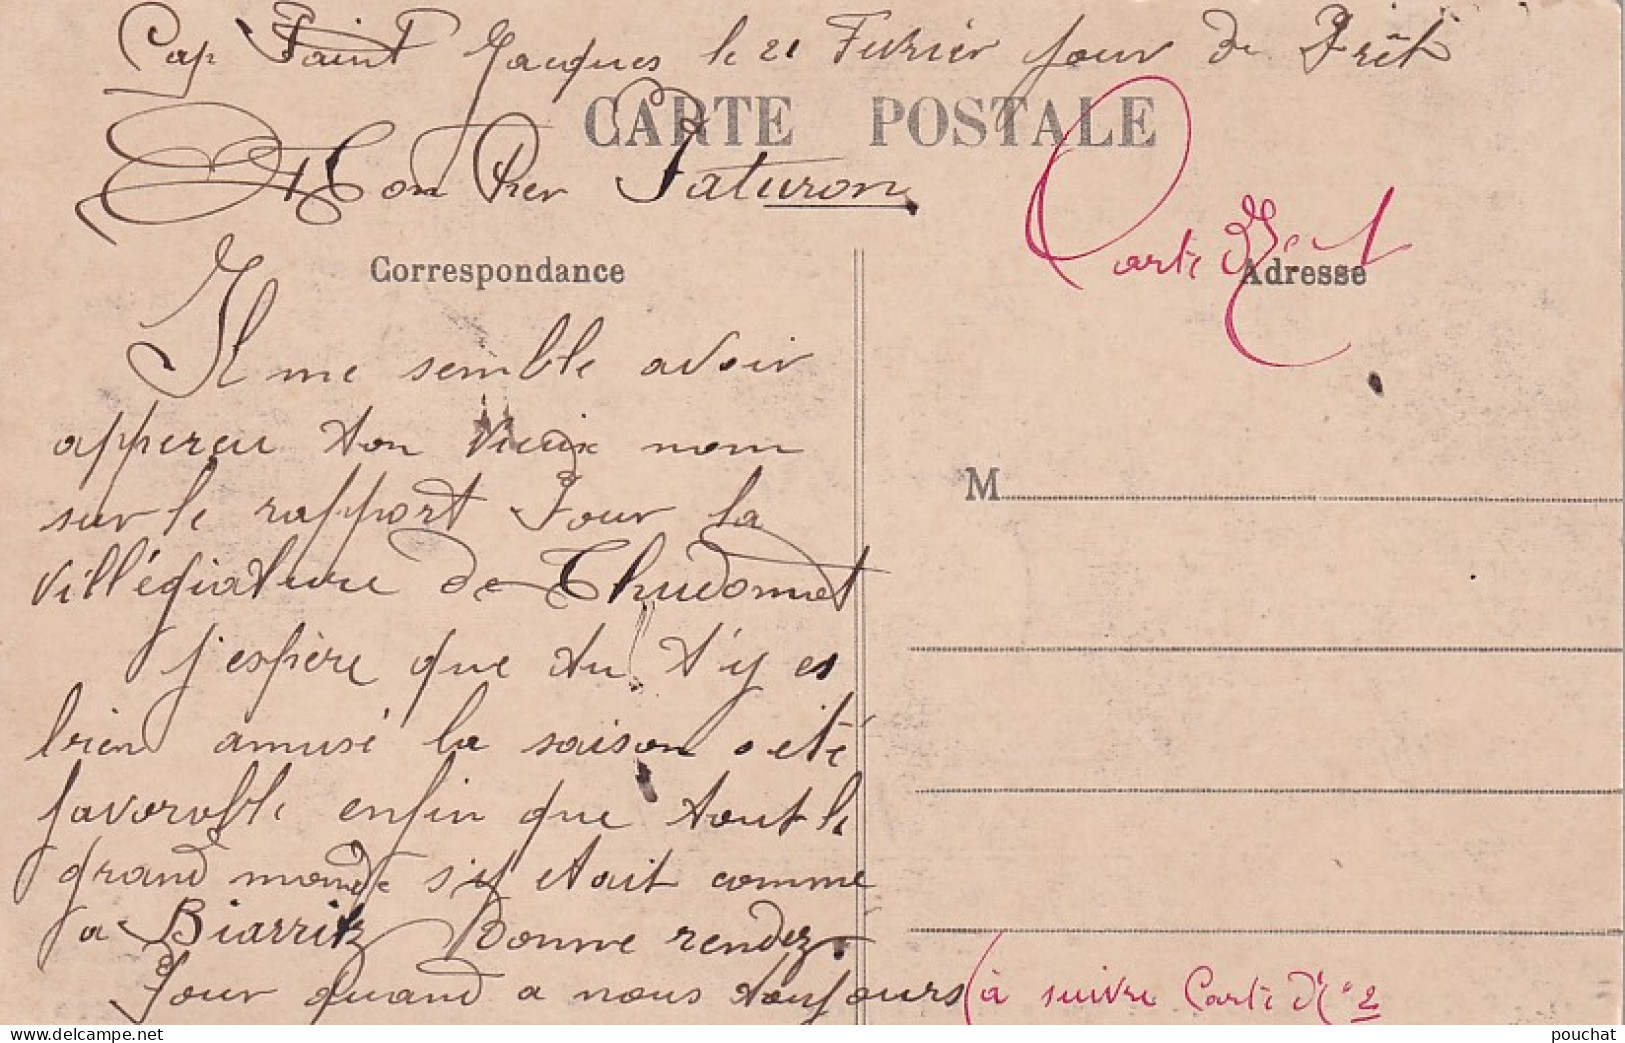 Cap Saint Jacques le 21 Fevrier jour de Prêt
CARTE POSTALE
Mon cher Paturon
Carte N° 1
Correspondance
Adresse
Il me semble avoir
apperçu ton vieux nom
sur le rapport Pour la
villégiature de Thudomnet
j'espère que tu t'y es
bien amusé la saison a été
favorable enfin que tout le
grand monde s'y etait comme
a Biarritz Donne rendez.
Pour quand a nous toujours (à suivre Carte N° 2
M
pouchat